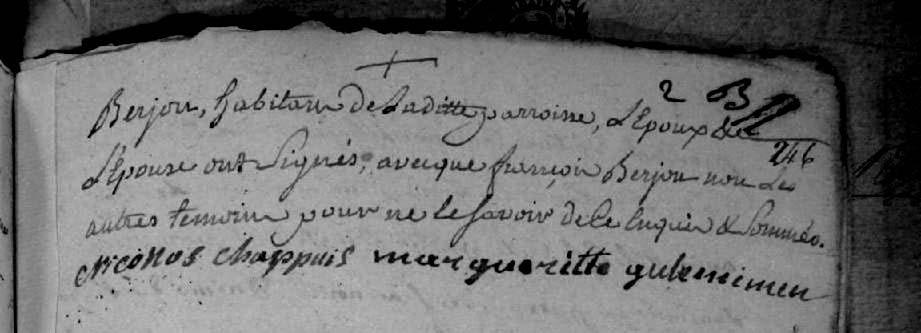 2 B
246
Berjon, habitans de Laditte parroisse, L'Epoux &
L'Epouse ont Signés, avecque françois Berjon non Les
autres temoins pour ne le savoir de ce enquis & Sommés.
Nicollas chappuis margueritte